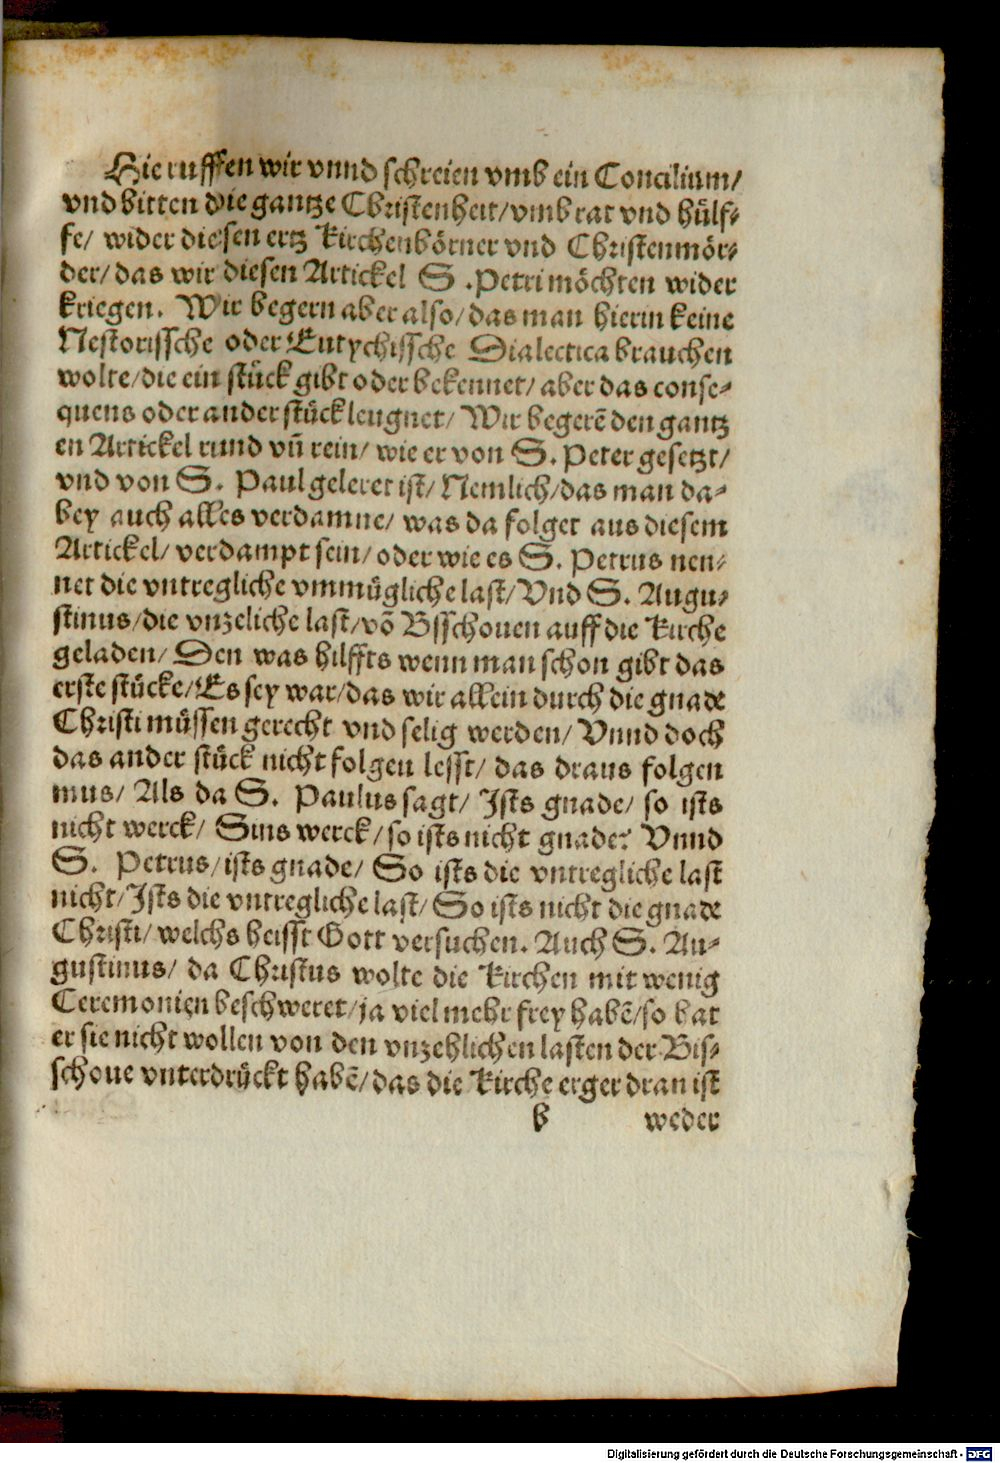 Hie ruffen wir vnnd schreien vmb ein Concilium/
vnd bitten die gantze Christenheit/vmb rat vnd hülf-
fe/ wider diesen ertz Kirchenbörner vnd Christenmör-
der/das wir diesen Artickel S. Petri möchten wider
kriegen. Wir begern aber also/das man hierin keine
Nestorissche oder Eutychissche Dialectica brauchen
wolte/die ein stück gibt oder bekennet/aber das conse-
quens oder ander stück leugnet/ Wir begerē den gantz
en Artickel rund vn̄ rein/ wie er von S. Peter gesetzt/
vnd von S. Paul geleret ist/ Nemlich/das man da-
bey auch alles verdamne/ was da folget aus diesem
Artickel/ verdampt sein/ oder wie es S. Petrus nen-
net die vntregliche vmmügliche last/ Vnd S. Augu-
stinus/die vnzeliche last/vō Bisschouen auff die Kirche
geladen/ Den was hilffts wenn man schon gibt das
erste stücke/Es sey war/das wir allein durch die gnade
Christi müssen gerecht vnd selig werden/ Vnnd doch
das ander stück nicht folgen lesst/ das draus folgen
mus/ Als da S. Paulus sagt/ Ists gnade/ so ists
nicht werck/ Sins werck/so ists nicht gnade: Vnnd
S. Petrus/ists gnade/ So ists die vntregliche last
nicht/Ists die vntregliche last/ So ists nicht die gnade
Christi/welchs heisst Gott versuchen. Auch S. Au-
gustinus/ da Christus wolte die Kirchen mit wenig
Ceremonien beschweret/ja viel mehr frey habē/so hat
er sie nicht wollen von den vnzehlichen lasten der Bis-
schoue vnterdrückt habē/das die Kirche erger dran ist
b weder
Digitalisierung gefördert durch die Deutsche Forschungsgemeinschaft - DFG